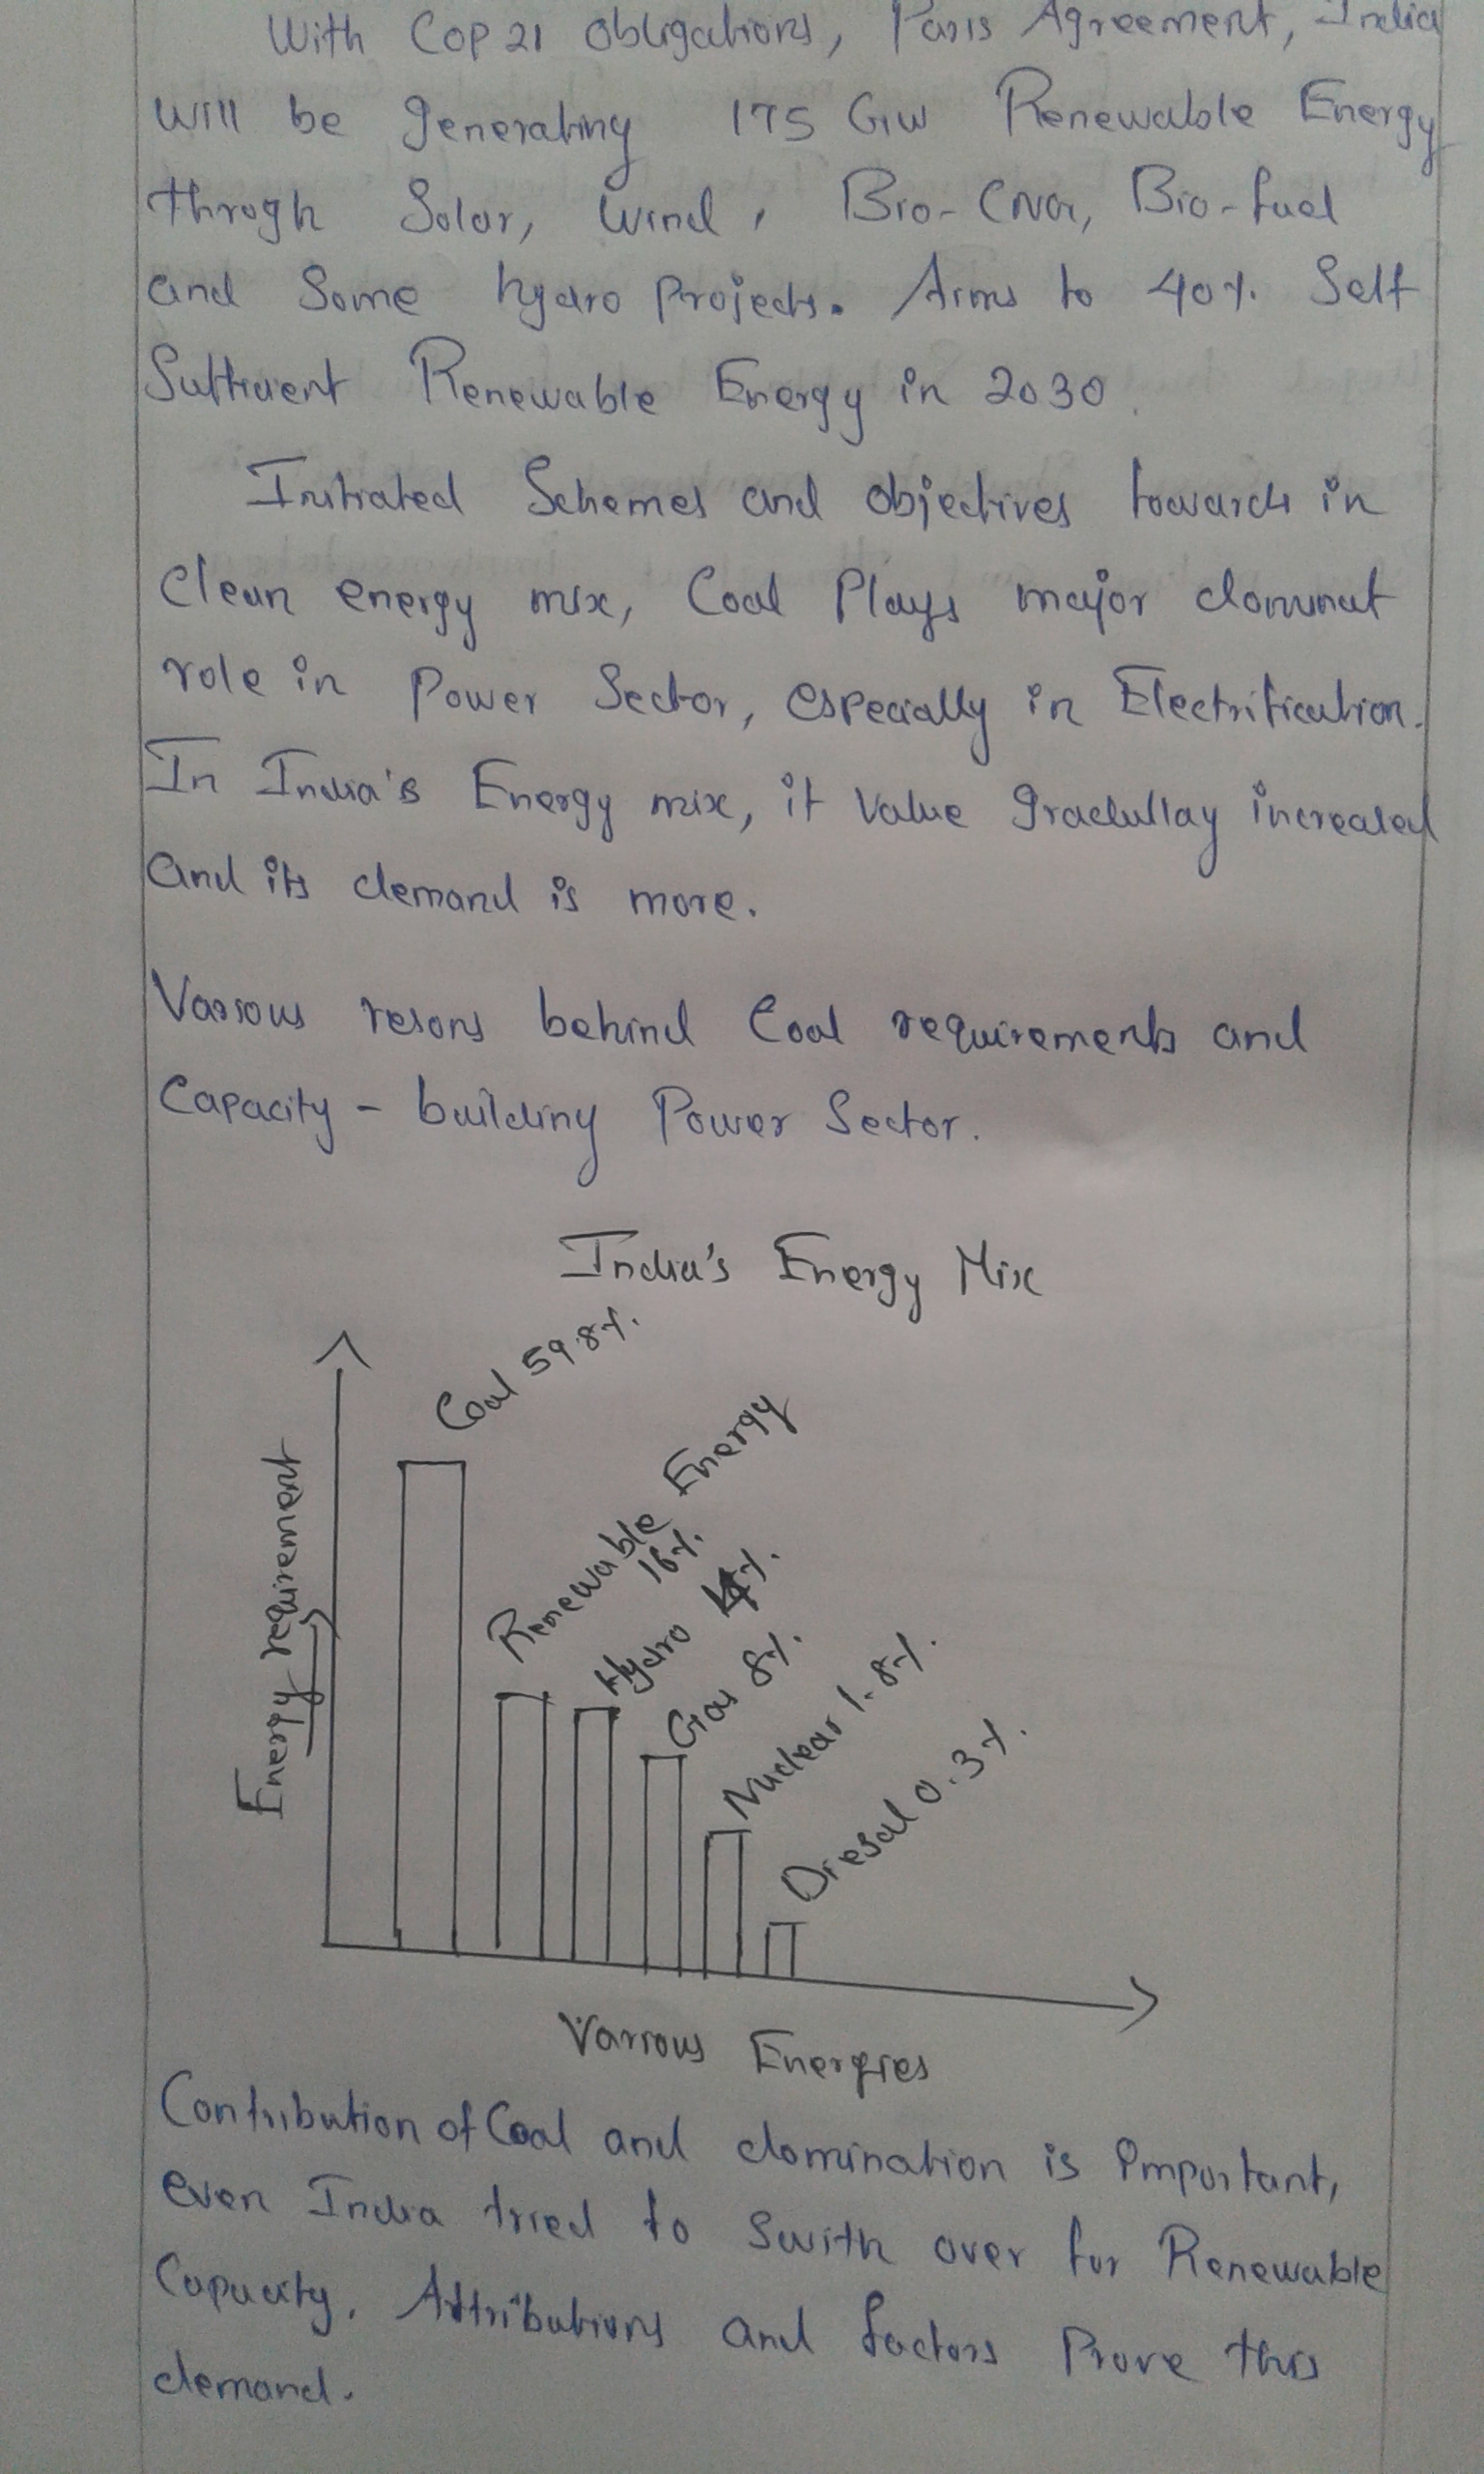 With Cop 21 obligations, Paris Agreement, India
will be generating 175 GW Renewable Energy
throgh Solar, wind, Bio-CNG, Bio-fuel
and Some hydro Projects. Aims to 40% Self
Sufficient Renewable Energy in 2030.
Initiated Schemes and objectives towards in
clean energy mix, Coal Plays major dominat
role in Power Sector, especially in Electrification.
In India's Energy mix, it value gradullay increased
and its demand is more.
Various resons behind Coal requirements and
Capacity - building Power Sector.
India's Energy Mix
Coal 59.8%.
Renewable Energy
16%.
Hydro %.
Gas 8%.
Nuclear 1.8%.
Diesal 0.3%.
Energy requirement
Various Energies
Contribution of Coal and domination is important,
even India tried to swith over for Renewable
Capacity. Attributions and factors Prove this
demand.